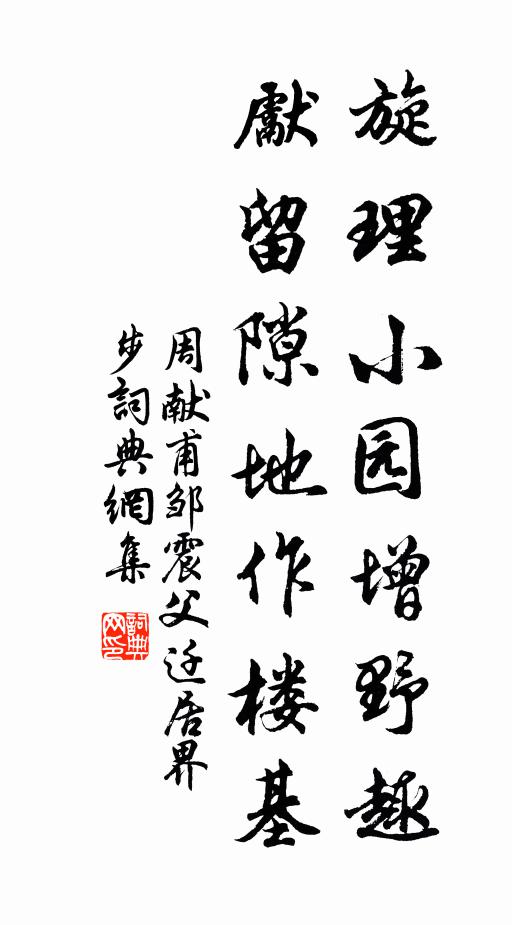 旋理小园增野趣
獻留隙地作楼基
周献甫邹震父迁居界
步詞典網集
詞典网印